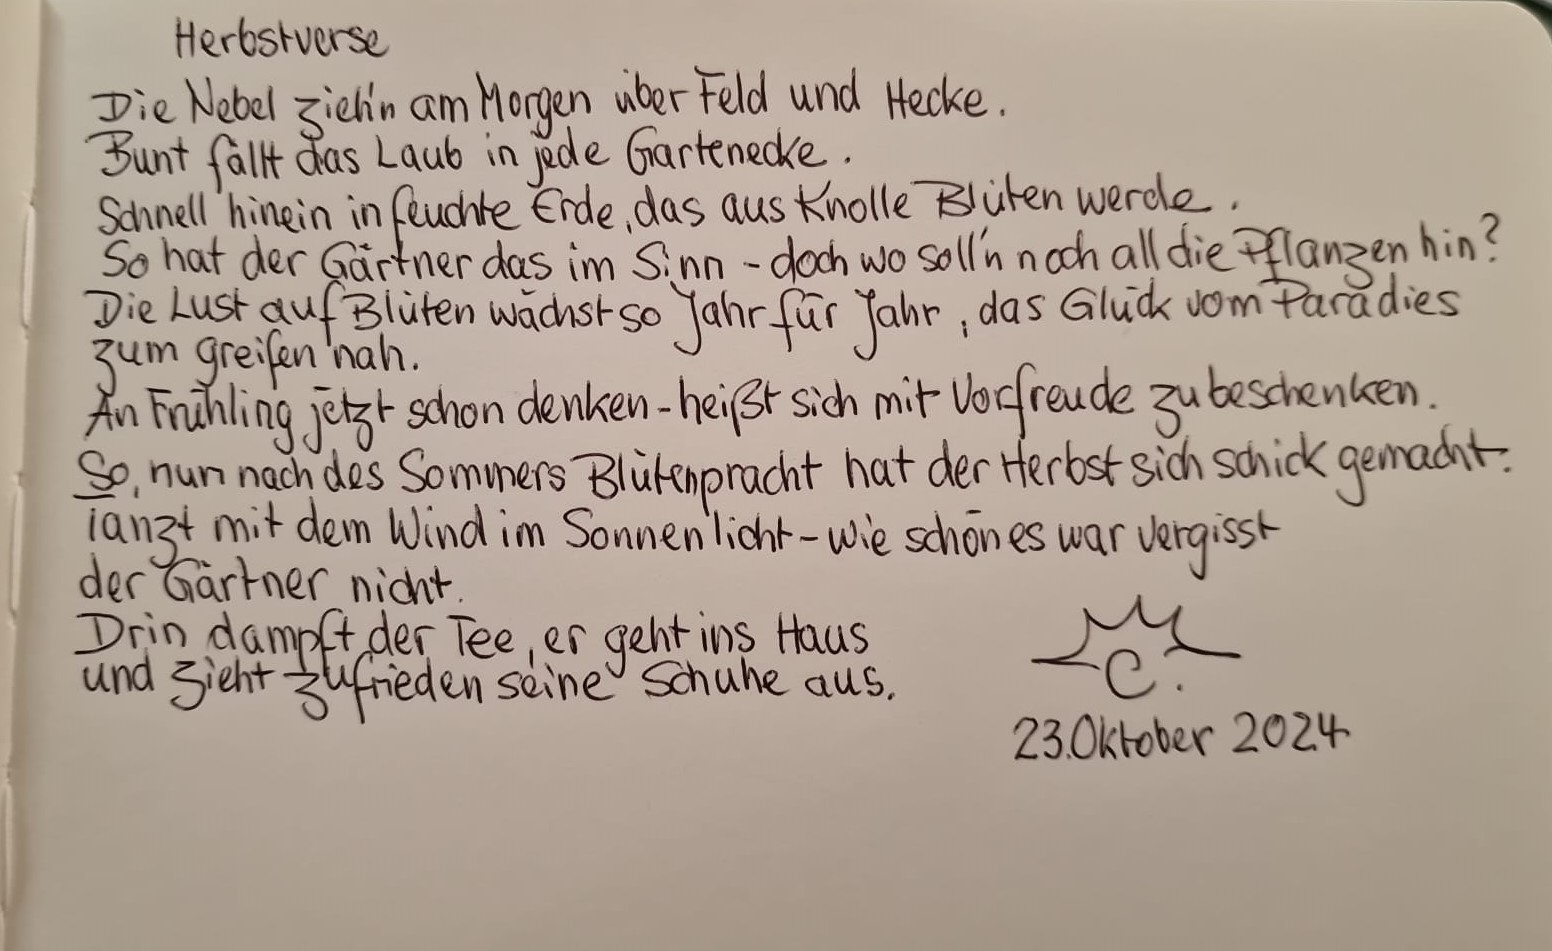 Herbstverse
Die Nebel zieh'n am Morgen über Feld und Hecke.
Bunt fällt das Laub in jede Gartenecke.
Schnell hinein in feuchte Erde, das aus Knolle Blüten werde.
So hat der Gärtner das im Sinn - doch wo soll'n noch all die Pflanzen hin?
Die Lust auf Blüten wächst so Jahr für Jahr, das Glück vom Paradies
zum greifen nah.
An Frühling jetzt schon denken - heißt sich mit Vorfreude zu beschenken.
So, nun nach des Sommers Blütenpracht hat der Herbst sich schick gemacht.
Tanzt mit dem Wind im Sonnenlicht - wie schön es war vergisst
der Gärtner nicht.
Drin dampft der Tee, er geht ins Haus
und zieht zufrieden seine Schuhe aus.
C.
23.Oktober 2024